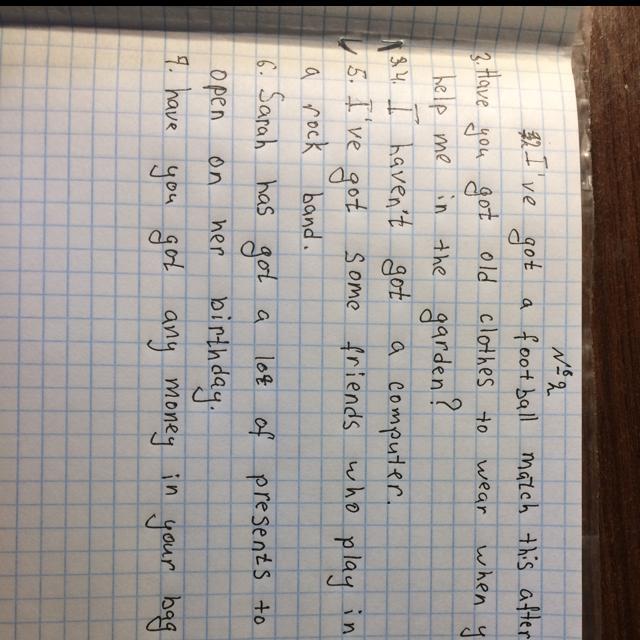 № 2
I've got a football match this after
3. Have you got old clothes to wear when y
help me in the garden?
4. I haven't got a computer.
5. I've got some friends who play in
a rock band.
6. Sarah has got a lot of presents to
open on her birthday.
7. have you got any money in your bag